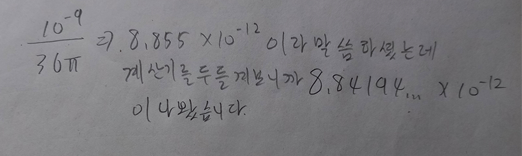 10⁻⁹
36π ⇒ 8.855 × 10⁻¹² 이라 말씀하셨는데
계산기를 두들겨보니까 8.84194... × 10⁻¹²
이 나왔습니다.